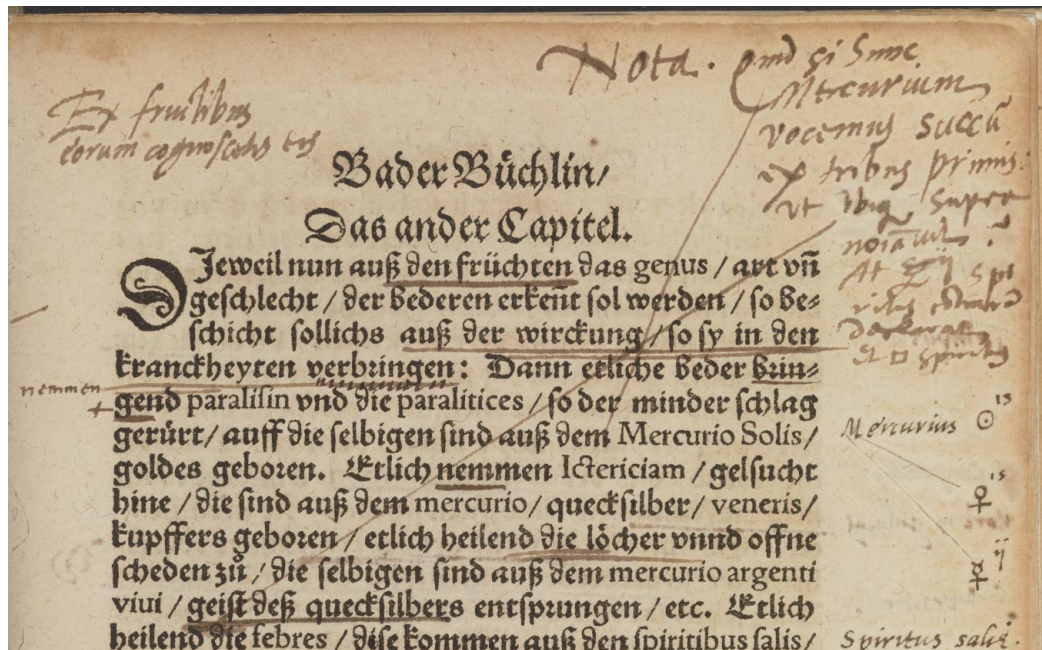 Nota.
Mercurium
Ex fructibus
vocemus succū
eorum cognoscetis eos
ex tribus primis
Bader Büchlin/
ut supra
Das ander Capitel.
DJeweil nun auß den früchten das genus / art vn̄
geschlecht / der bederen erkeñt sol werden / so be⸗
schicht sollichs auß der wirckung / so sy in den
kranckheyten verbringen: Dann etliche beder brin⸗
nemmen
gend paralisin vnd die paralitices / so der minder schlag
gerürt / auff die selbigen sind auß dem Mercurio Solis /
Mercurius ☉ 13
goldes geboren. Etlich nemmen Ictericiam / gelsucht
hine / die sind auß dem mercurio / quecksilber / veneris /
♀ 15
kupffers geboren / etlich heilend die löcher vnnd offne
scheden zů / die selbigen sind auß dem mercurio argenti
☿ ij
viui / geist deß quecksilbers entsprungen / etc. Etlich
heilend die febres / dise kommen auß den spiritibus salis /
Spiritus salis.